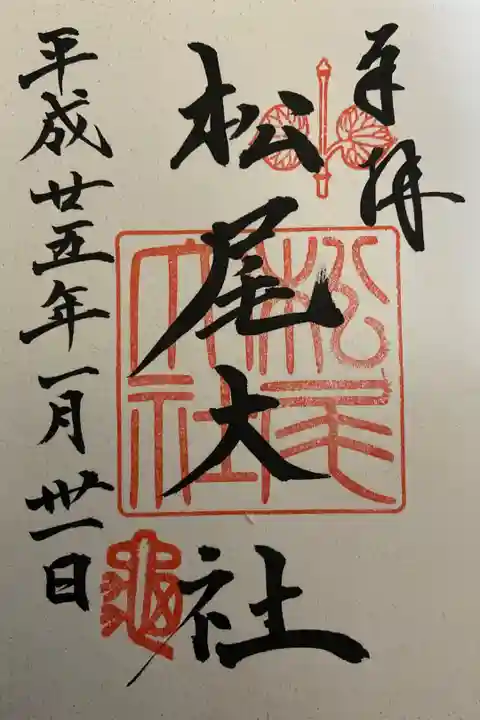 奉拝
松尾大社
平成廿五年一月卅一日
松尾大社